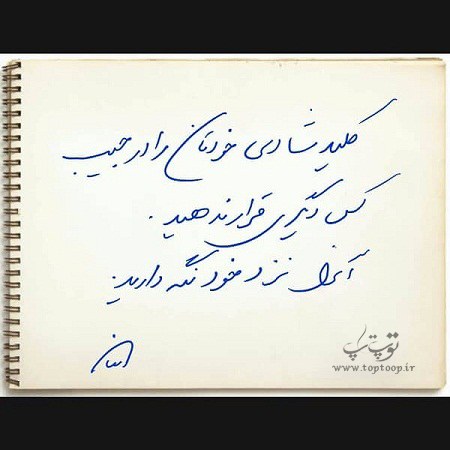 کلید شادی خودتان را در جیب
کس دیگری قرار ندهید.
آنرا نزد خود نگه دارید.
توپ تاپ
www.toptoop.ir